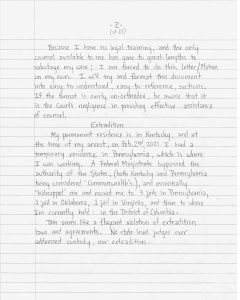 -2-
(of 21)
Because I have no legal training, and the only
counsel available to me has gone to great lengths to
sabotage my case; I am forced to do this letter/Motion
on my own. I will try and format this document
into easy-to-understand, easy-to-reference, sections.
If the format is overly un-orthodox, be aware that it
is the Courts negligence in providing effective assistance
of counsel.
Extradition
My permanent residence is in Kentucky, and at
the time of my arrest, on Feb. 2nd, 2021 I had a
temporary residence in Pennsylvania, which is where
I was working. A Federal Magistrate bypassed the
authority of the States, (both Kentucky and Pennsylvania
being considered "Commonwealth's), and essentially
"kidnapped" me and moved me to 3 jails in Pennsylvania,
1 jail in Oklahoma, 1 jail in Virginia, and then to where
I'm currently held: in the District of Columbia.
This seems like a flagrant violation of extradition
laws and agreements. No state level judges ever
addressed custody, nor extradition.